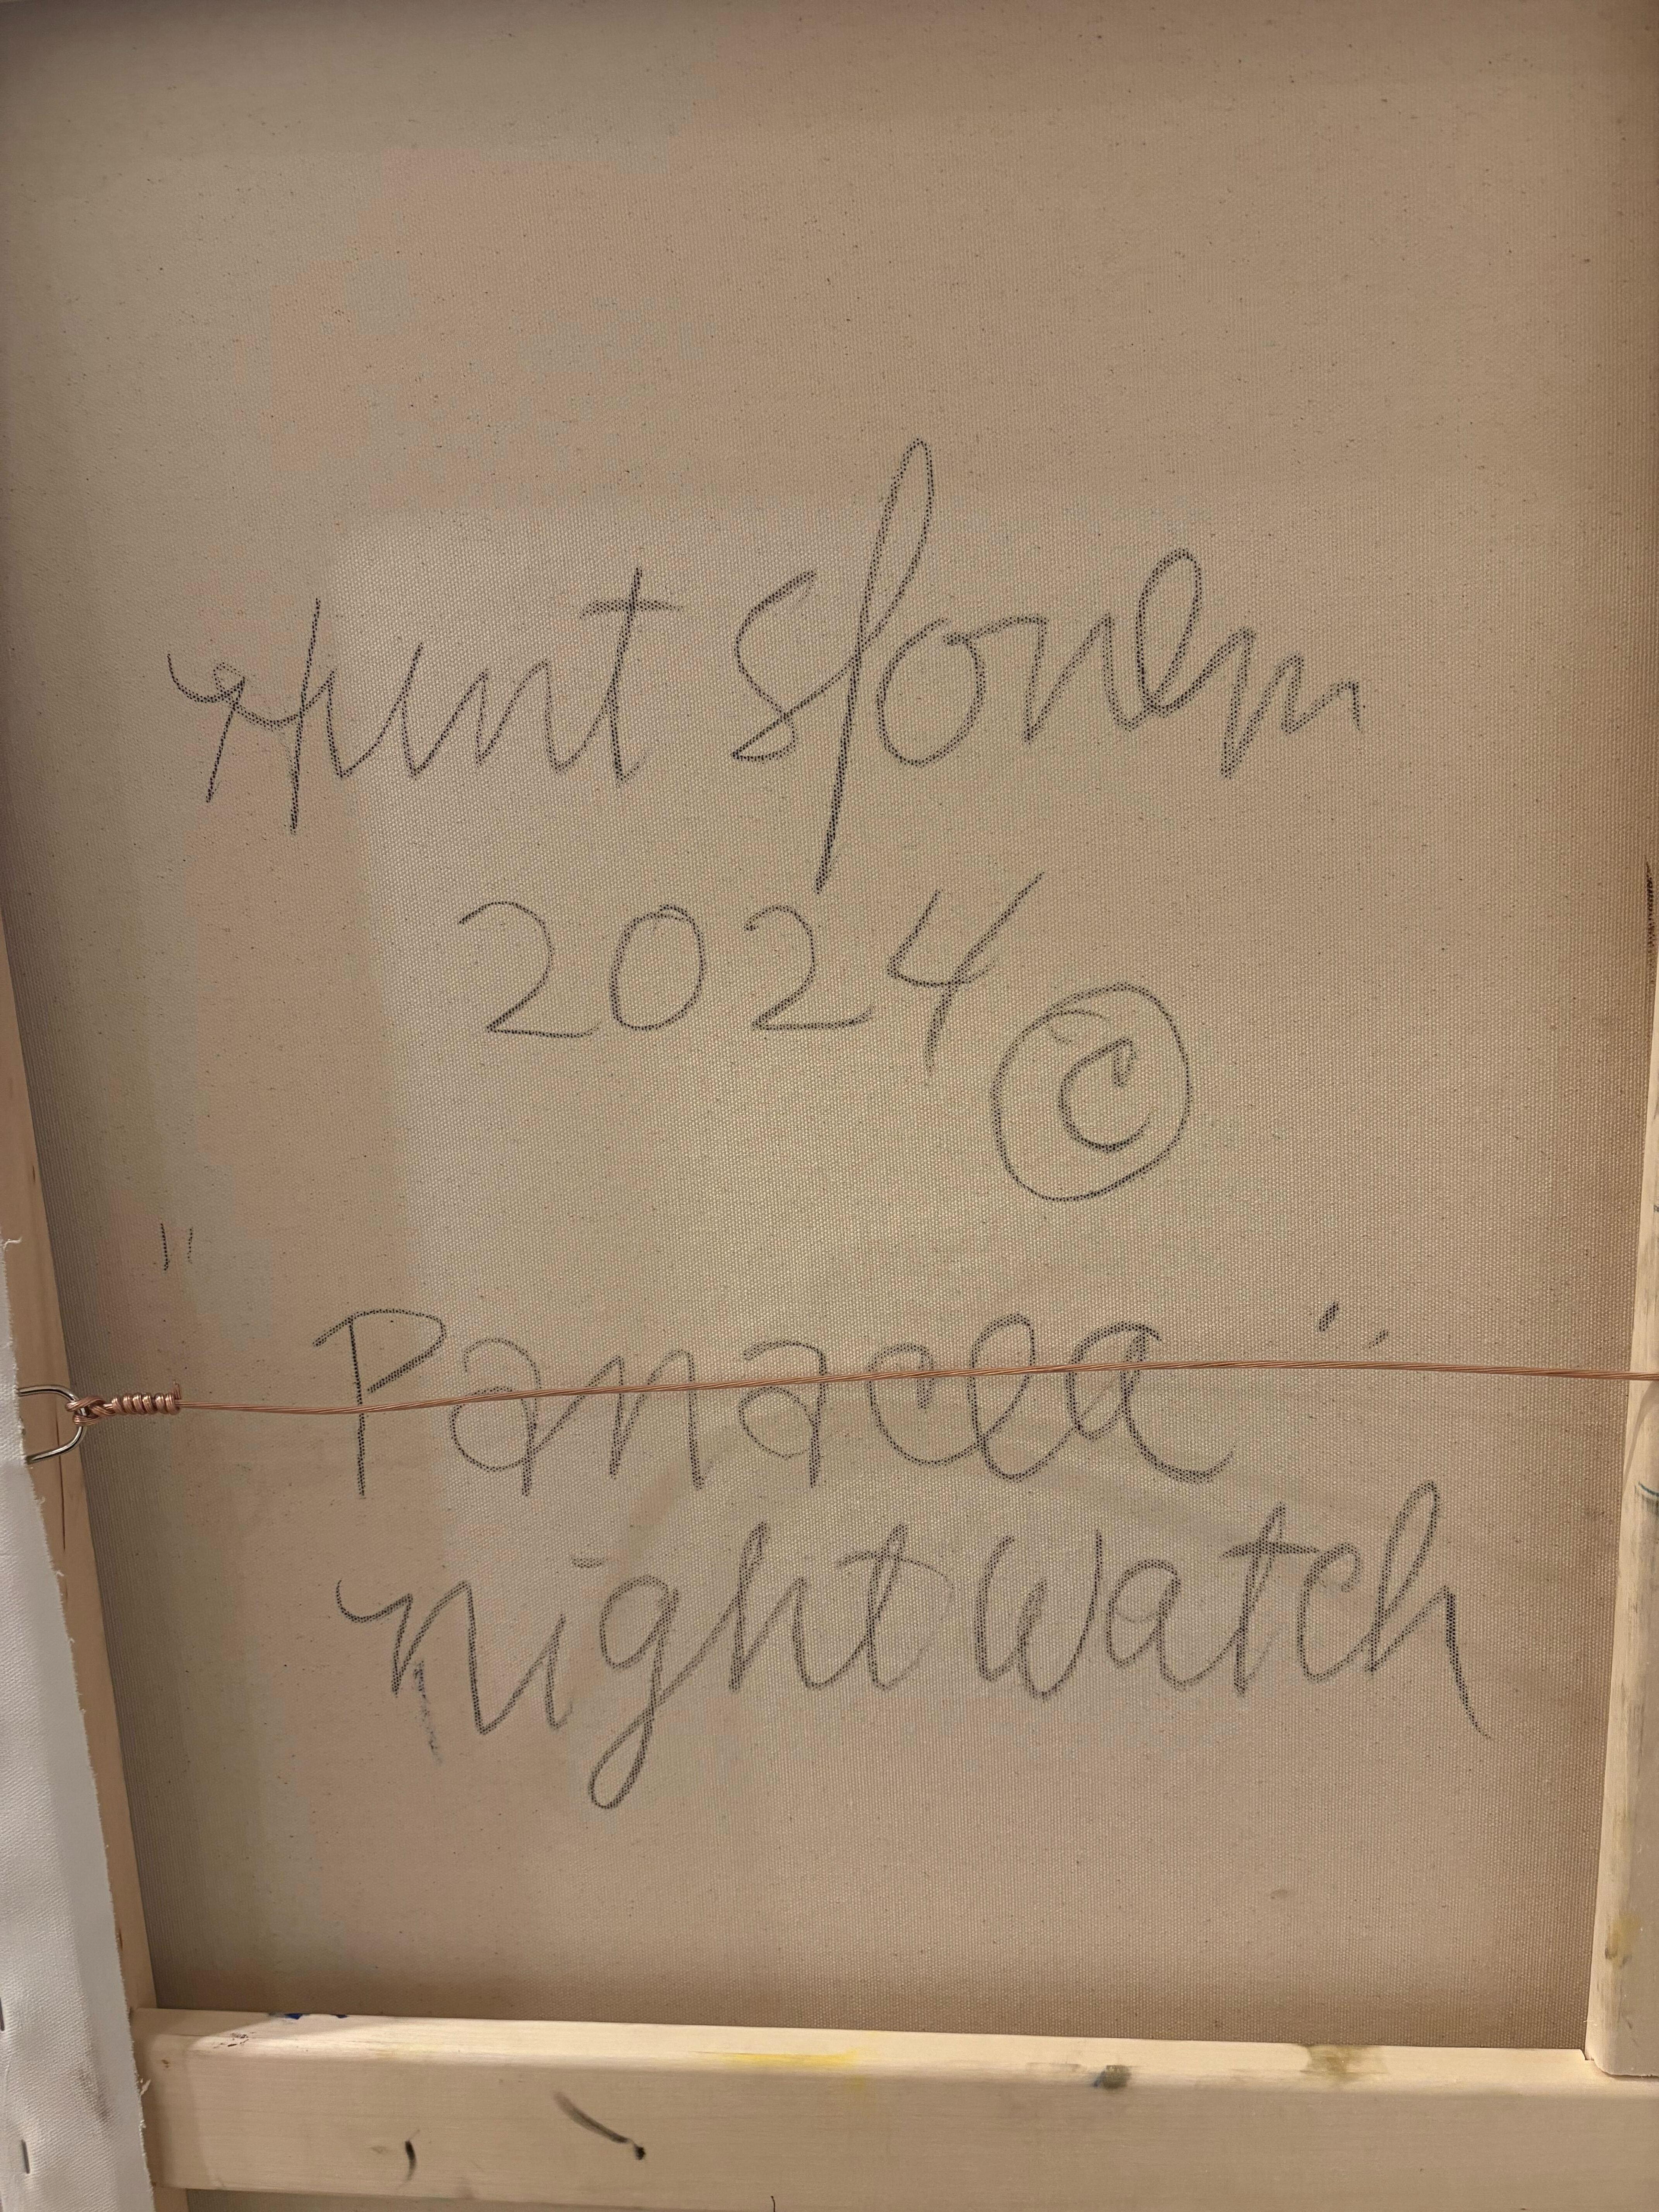 Hunt Slonem
2024
©
"Panacea"
Nightwatch